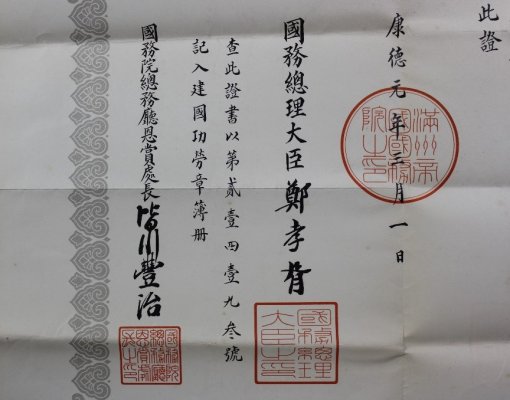 此證
康德元年三月一日
國務總理大臣鄭孝胥
查此證書以第貳壹四壹九叁號
記入建國功勞章簿冊
國務院總務廳恩賞處長皆川豐治
滿州帝
國國務
院之印
國務總理
大臣之印
國務院
總務廳
恩賞處
長之印